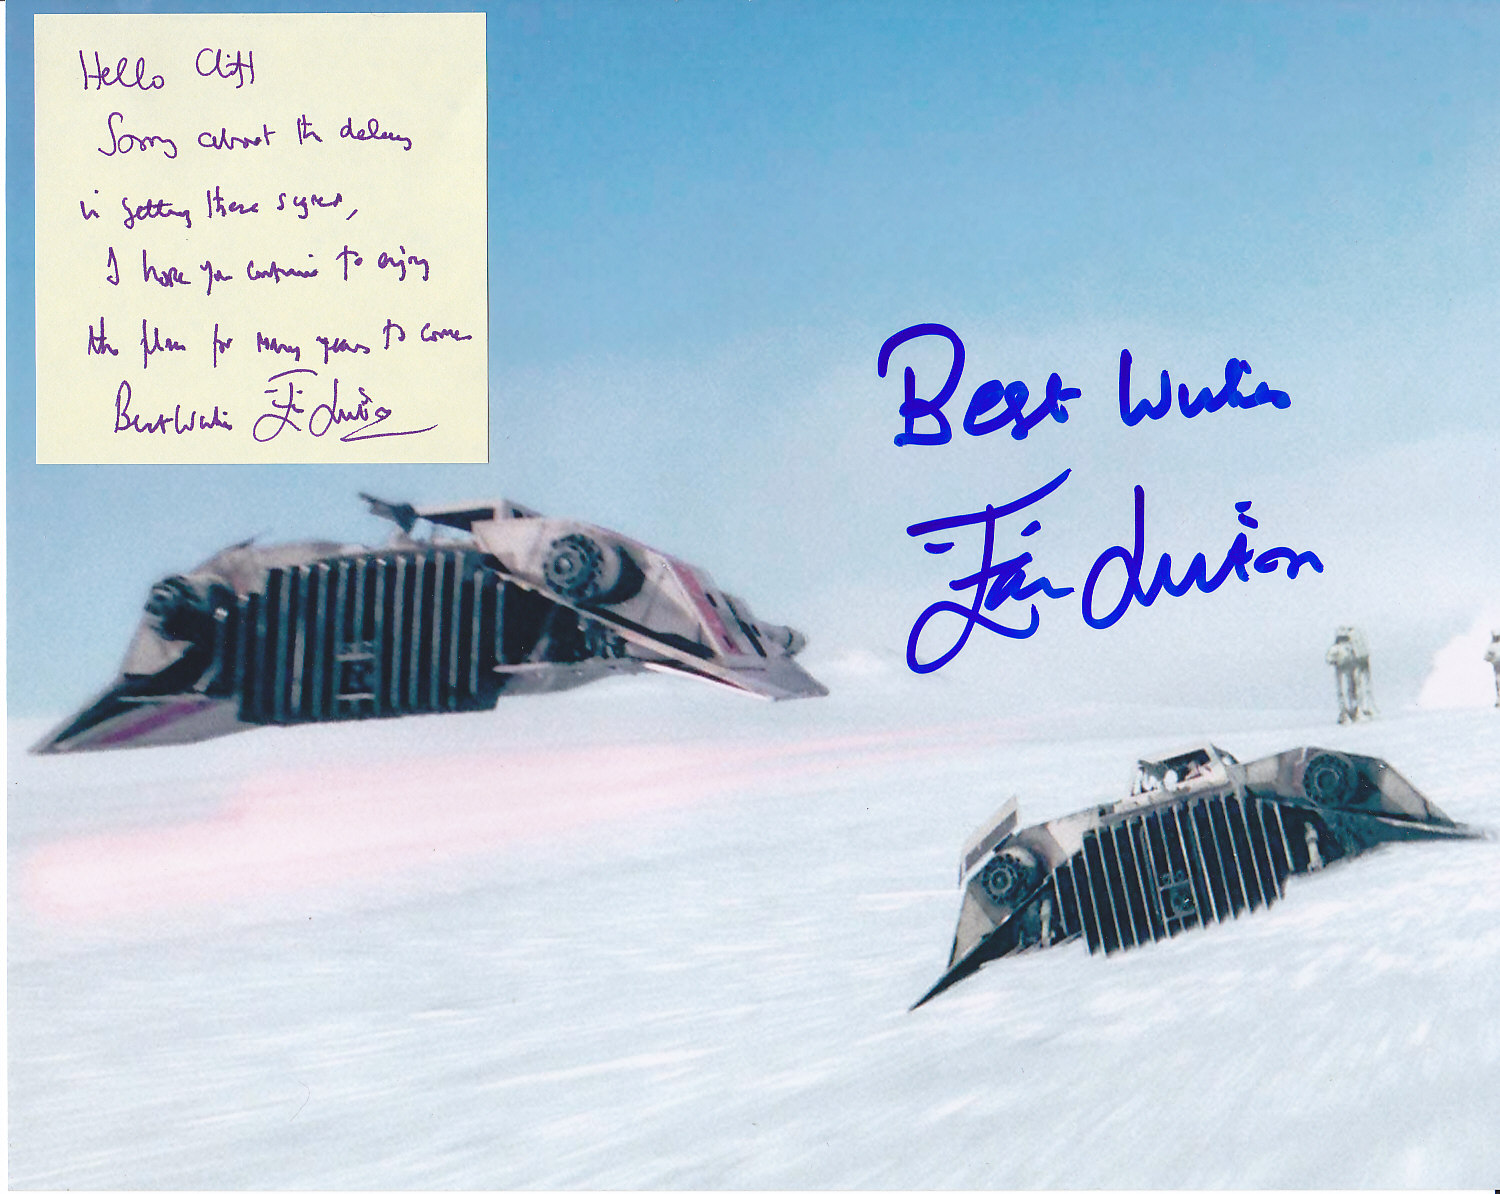 Hello Cliff
Sorry about the delay
in getting these signed,
I hope you continue to enjoy
the films for many years to come
Best Wishes Ian Liston
Best Wishes
Ian Liston